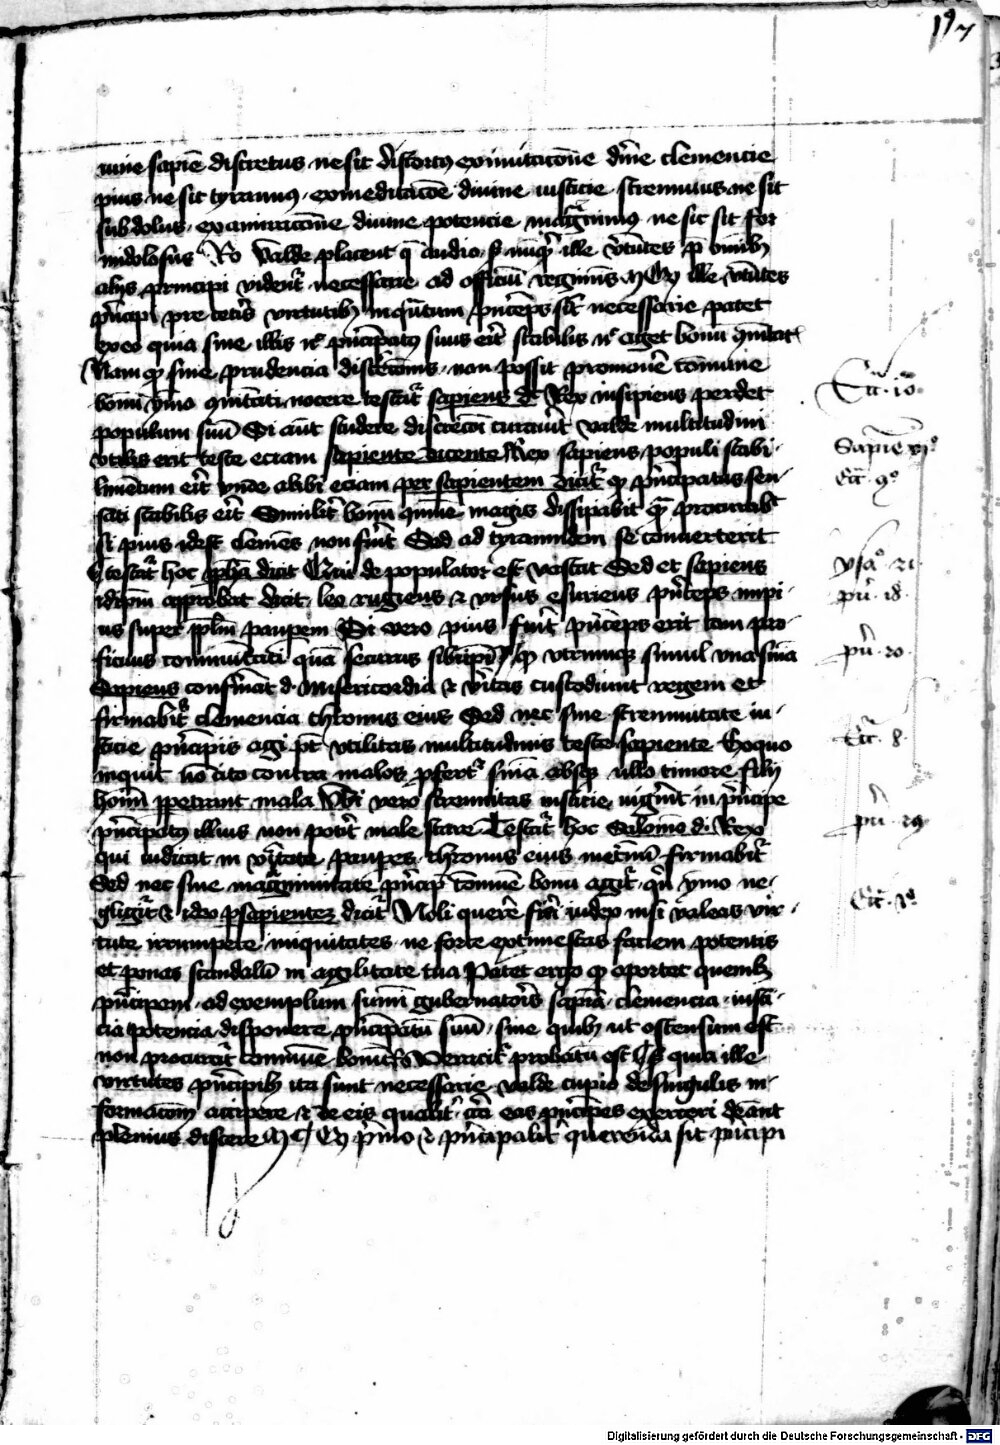 197
uine sapie discretus · ne sit discors ex imitacione diuine clemencie
pius ne sit tyrannus · ex meditacoe diuine iusticie strennuus ne sit
subdolus · ex admiracione diuine potencie magnanimus ne sit for
midolosus R valde placent que audio · sed nuquid ille virtutes pre omnibus
alijs principi videntur necessarie ad officiu regiminis M Quod ille virtutes
principi pre ceteris virtutibus inquantum princeps sunt necessarie patet
ex eo quia sine illis nec principatus suus erit stabilis nec auget bonu comunitatis
Nam quod sine prudencia discrecionis non possit promouere comune
bonu ymo comunitati nocere testatur sapiens d Rex insipiens perdet
populum suu Si aut studere discrecioni curauerit valde multitudini
vtilis erit teste eciam sapiente dicente Rex sapiens populi stabi ·
limentum erit vnde alibi eciam per sapientem dicitur quod principatus sen ·
sati stabilis erit Similiter bonu comune magis dissipabit quam procurabit
si pius idest clemes non fuerit Sed ad tyrannidem se conuerterit
testatur hoc propheta dicit Qui depopulator est vastat Sed et sapiens
idipsum approbat dicit · leo rugiens et vrsus esuriens princeps impi ·
us super populum pauperem Si vero pius fuerit princeps erit tam pro ·
ficuus communitati quam securus sibiipsi quod vtrumque simul vna sententia
Sapiens confirmat d · Misericordia et veritas custodiunt regem et
firmabitur clemencia thronus eius Sed nec sine strennuitate iu ·
sticie principis agi potest vtilitas multitudinis teste sapiente Ex quo
inquit no cito contra malos profertur sentencia absque vllo timore filij
hominum perpetrant mala Vbi vero strennuitas iusticie viguerit in principe
principatus illius non poterit male stare Testatur hoc Salomon d · Rex
qui iudicat in veritate pauperes · thronus eius in eternum firmabitur
Sed nec sine magnanimitate principum comune bonu agitur · quin ymo ne ·
gligitur et ideo per sapientem dicitur Noli querere fieri iudex nisi valeas vir ·
tute irrumpere iniquitates ne forte extimescas faciem potentis
et ponas scandalu in agilitate tua Patet ergo quod oportet quemlibet
principem · ad exemplum summi gubernatoris sapiencia · clemencia · iusti ·
cia potencia disponere principatu suu · sine quibus ut ostensum est
non procuratur commune bonu Veraciter probatu est Sed quia ille
virtutes principibus ita sunt necessarie valde cupio de singulis in ·
formacionem accipere et de eis qualiter circa eas principes exerceri debeant
plenius discere M Quod primo et principaliter querenda sit principi
Ecc · 10
Sapie vi
Ecc · 9
ysa · 21
pu · 28
pu · 20
Ecc · 8
pu · 29
Ecc · 7
Digitalisierung gefördert durch die Deutsche Forschungsgemeinschaft - DFG